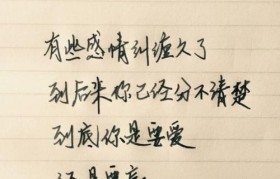 有些感情纠缠久了
到后来你已经分不清楚
到底你是要爱
还是要